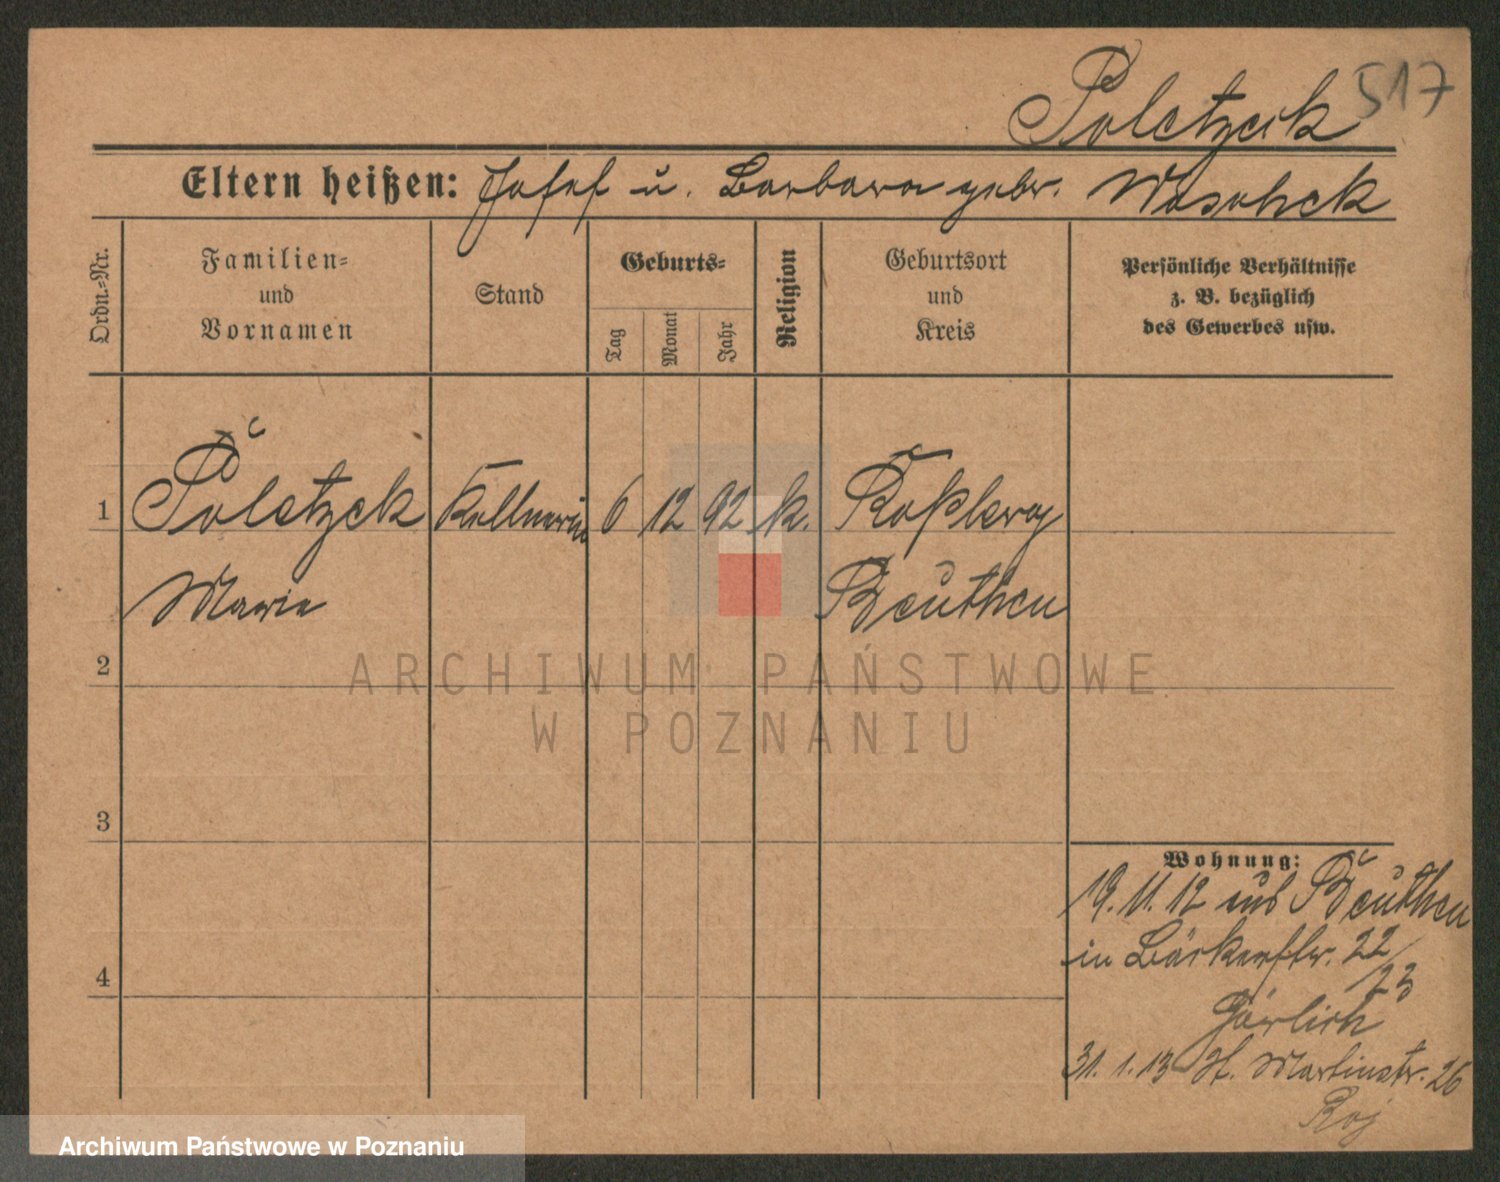 517
Poletzek
Eltern heißen: Josef u. Barbara gebr. Wosohek
Ordn.-Nr.
Familien-
und
Vornamen
Stand
Geburts-
Tag
Monat
Jahr
Religion
Geburtsort
und
Kreis
Persönliche Verhältnisse
z. B. bezüglich
des Gewerbes usw.
1 Poletzek Kellnerin 6 12 92 k. Roßberg
Marie Beuthen
2
3
4
Wohnung:
19.11.12 aus Beuthen
in Bäckerstr. 22/23
Görlich
31.1.13 St. Martinstr. 26
Roj
ARCHIWUM PAŃSTWOWE
W POZNANIU
Archiwum Państwowe w Poznaniu